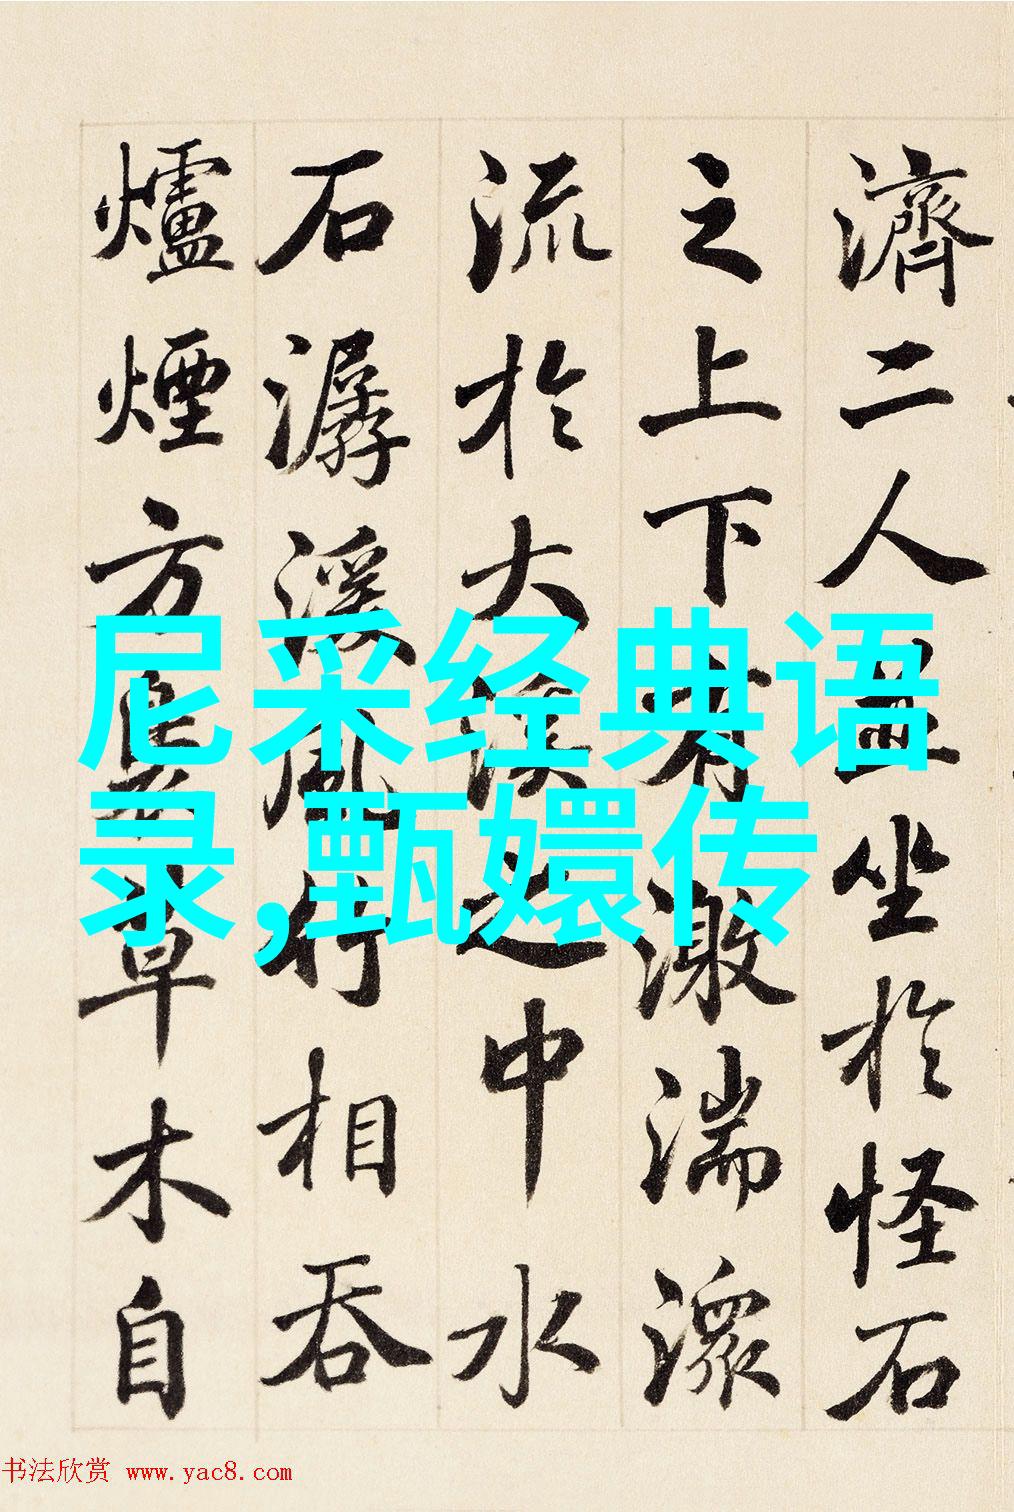 濟二人並坐於怪石
之上下有激湍潨
流於大溪之中水
石潺湲風竹相吞
爐煙方裊草木自
尼采经典语
录,甄嬛传
书法欣赏 www.yac8.com